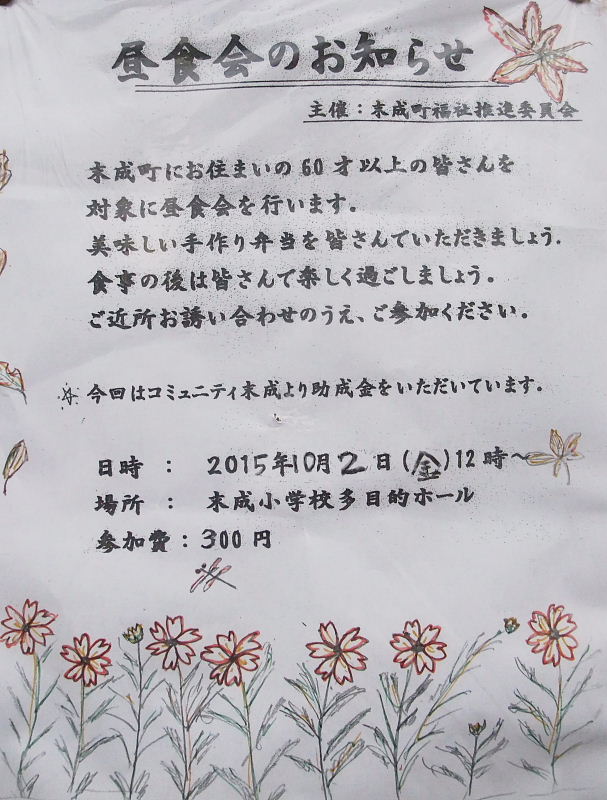 昼食会のお知らせ
主催：末成町福祉推進委員会
末成町にお住まいの60才以上の皆さんを
対象に昼食会を行います。
美味しい手作り弁当を皆さんでいただきましょう.
食事の後は皆さんで楽しく過ごしましょう。
ご近所お誘い合わせのうえ、ご参加ください。
今回はコミュニティ末成より助成金をいただいています。
日時 ： 2015年10月2日(金)12時～
場所 ： 末成小学校多目的ホール
参加費：300円